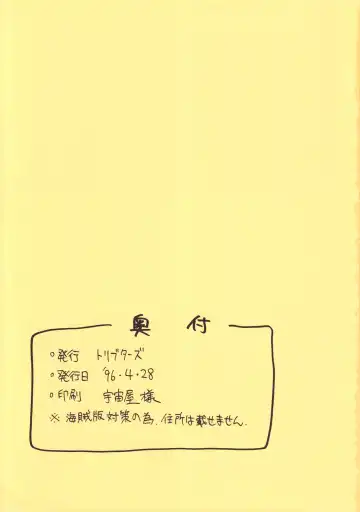 奥付
○発行 トリプターズ
○発行日 '96・4・28
○印刷 宇宙屋様
※海賊版対策の為、住所は載せません.